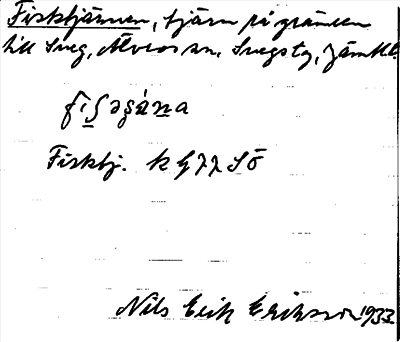 Fisktjärnen, tjärn på gränsen
till Sveg, Älvros sn, Svegs tg, Jämtl.
Fisktj. k G 77 SÖ
Nils Erik Eriksson 1933